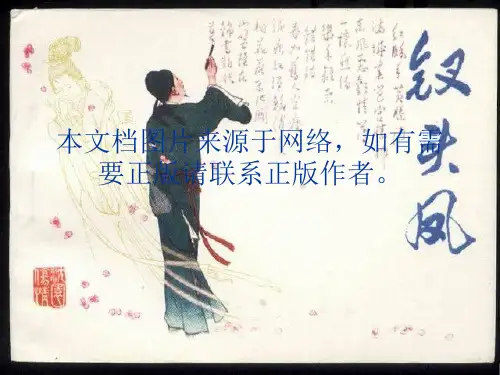 钗头凤
满城春色宫墙柳
东风恶欢情薄
一怀愁绪
几年离索
错错错
春如旧人空瘦
泪痕红浥鲛绡透
桃花落闲池阁
山盟虽在
锦书难托
本文档图片来源于网络，如有需
要正版请联系正版作者。